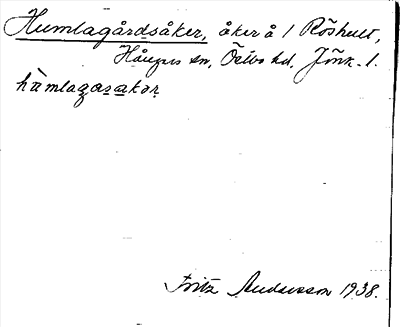 Humlagårdsåker, åker å 1 Röshult,
Hångers sn, Östbo hd. Jönk. l.
hùmlagasakər
Fritz Andersson 1938.